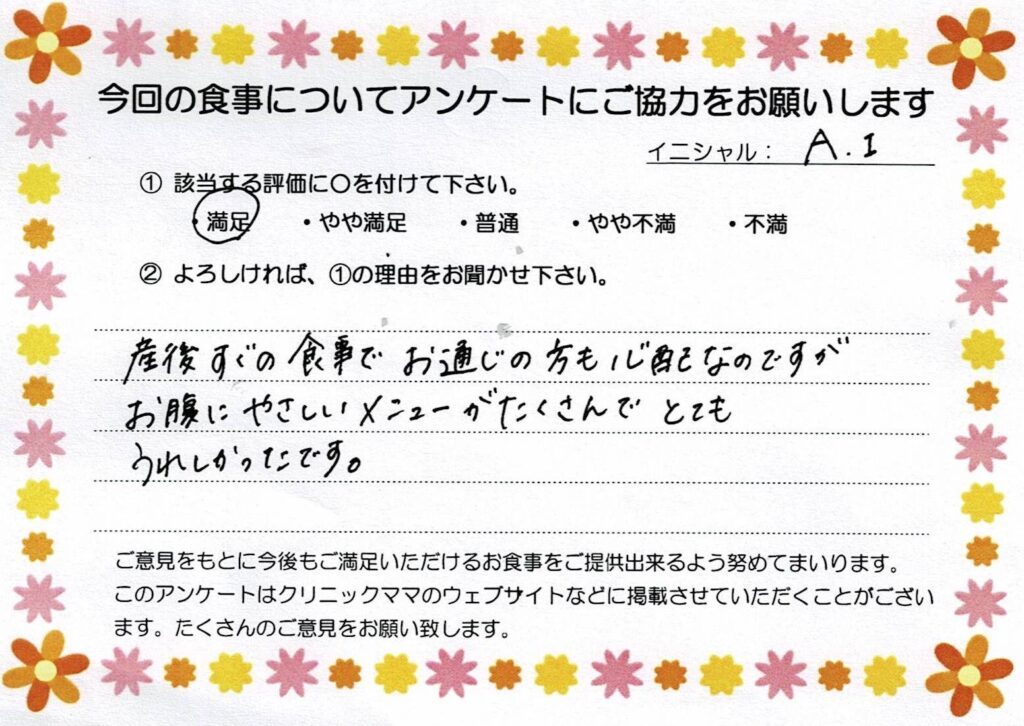 今回の食事についてアンケートにご協力をお願いします
イニシャル： A.I
① 該当する評価に〇を付けて下さい。
・満足 ・やや満足 ・普通 ・やや不満 ・不満
② よろしければ、①の理由をお聞かせ下さい。
産後すぐの食事でお通じの方も心配なのですが
お腹にやさしいメニューがたくさんでとても
うれしかったです。
ご意見をもとに今後もご満足いただけるお食事をご提供出来るよう努めてまいります。
このアンケートはクリニックママのウェブサイトなどに掲載させていただくことがござい
ます。たくさんのご意見をお願い致します。